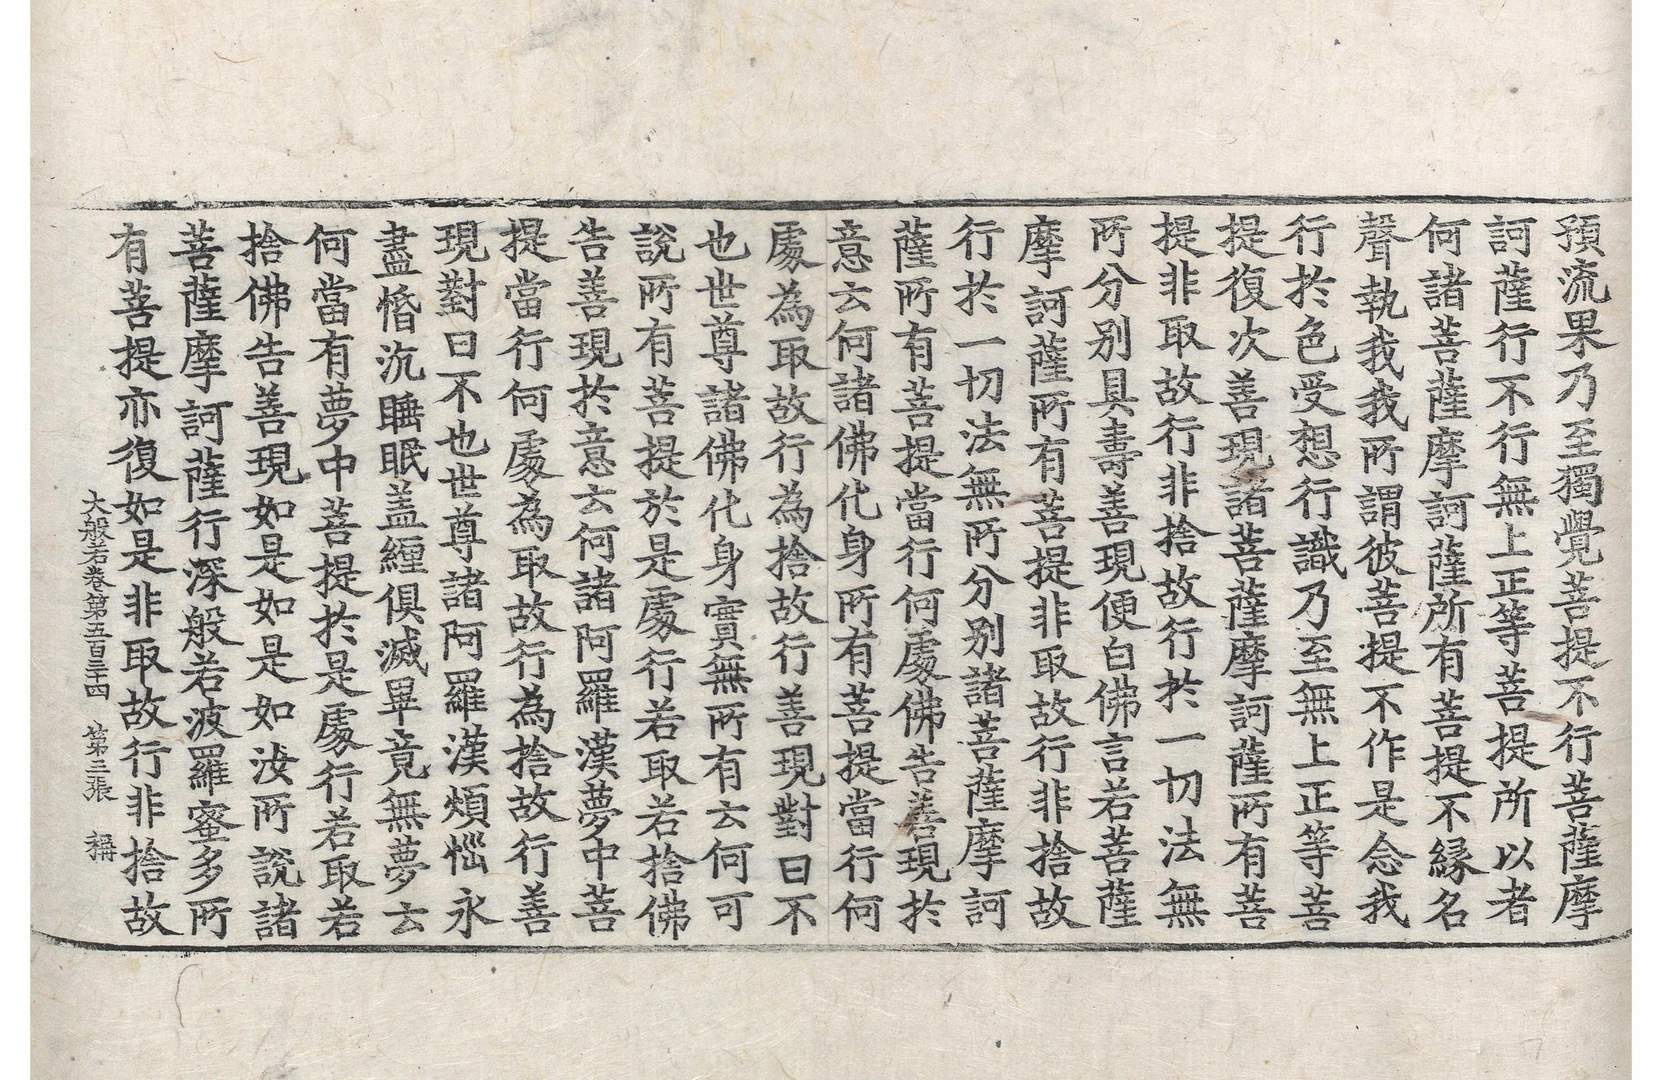 預流果乃至獨覺菩提不行菩薩摩
訶薩行不行無上正等菩提所以者
何諸菩薩摩訶薩所有菩提不緣名
聲執我我所謂彼菩提不作是念我
行於色受想行識乃至無上正等菩
提復次善現諸菩薩摩訶薩所有菩
提非取故行非捨故行於一切法無
所分別具壽善現便白佛言若菩薩
摩訶薩所有菩提非取故行非捨故
行於一切法無所分別諸菩薩摩訶
薩所有菩提當行何處佛告善現於
意云何諸佛化身所有菩提當行何
處為取故行為捨故行善現對曰不
也世尊諸佛化身實無所有云何可
說所有菩提於是處行若取若捨佛
告善現於意云何諸阿羅漢夢中菩
提當行何處為取故行為捨故行善
現對曰不也世尊諸阿羅漢煩惱永
盡惛沉睡眠盖纏俱滅畢竟無夢云
何當有夢中菩提於是處行若取若
捨佛告善現如是如是如汝所說諸
菩薩摩訶薩行深般若波羅蜜多所
有菩提亦復如是非取故行非捨故
大般若卷第五百三十四 第三張